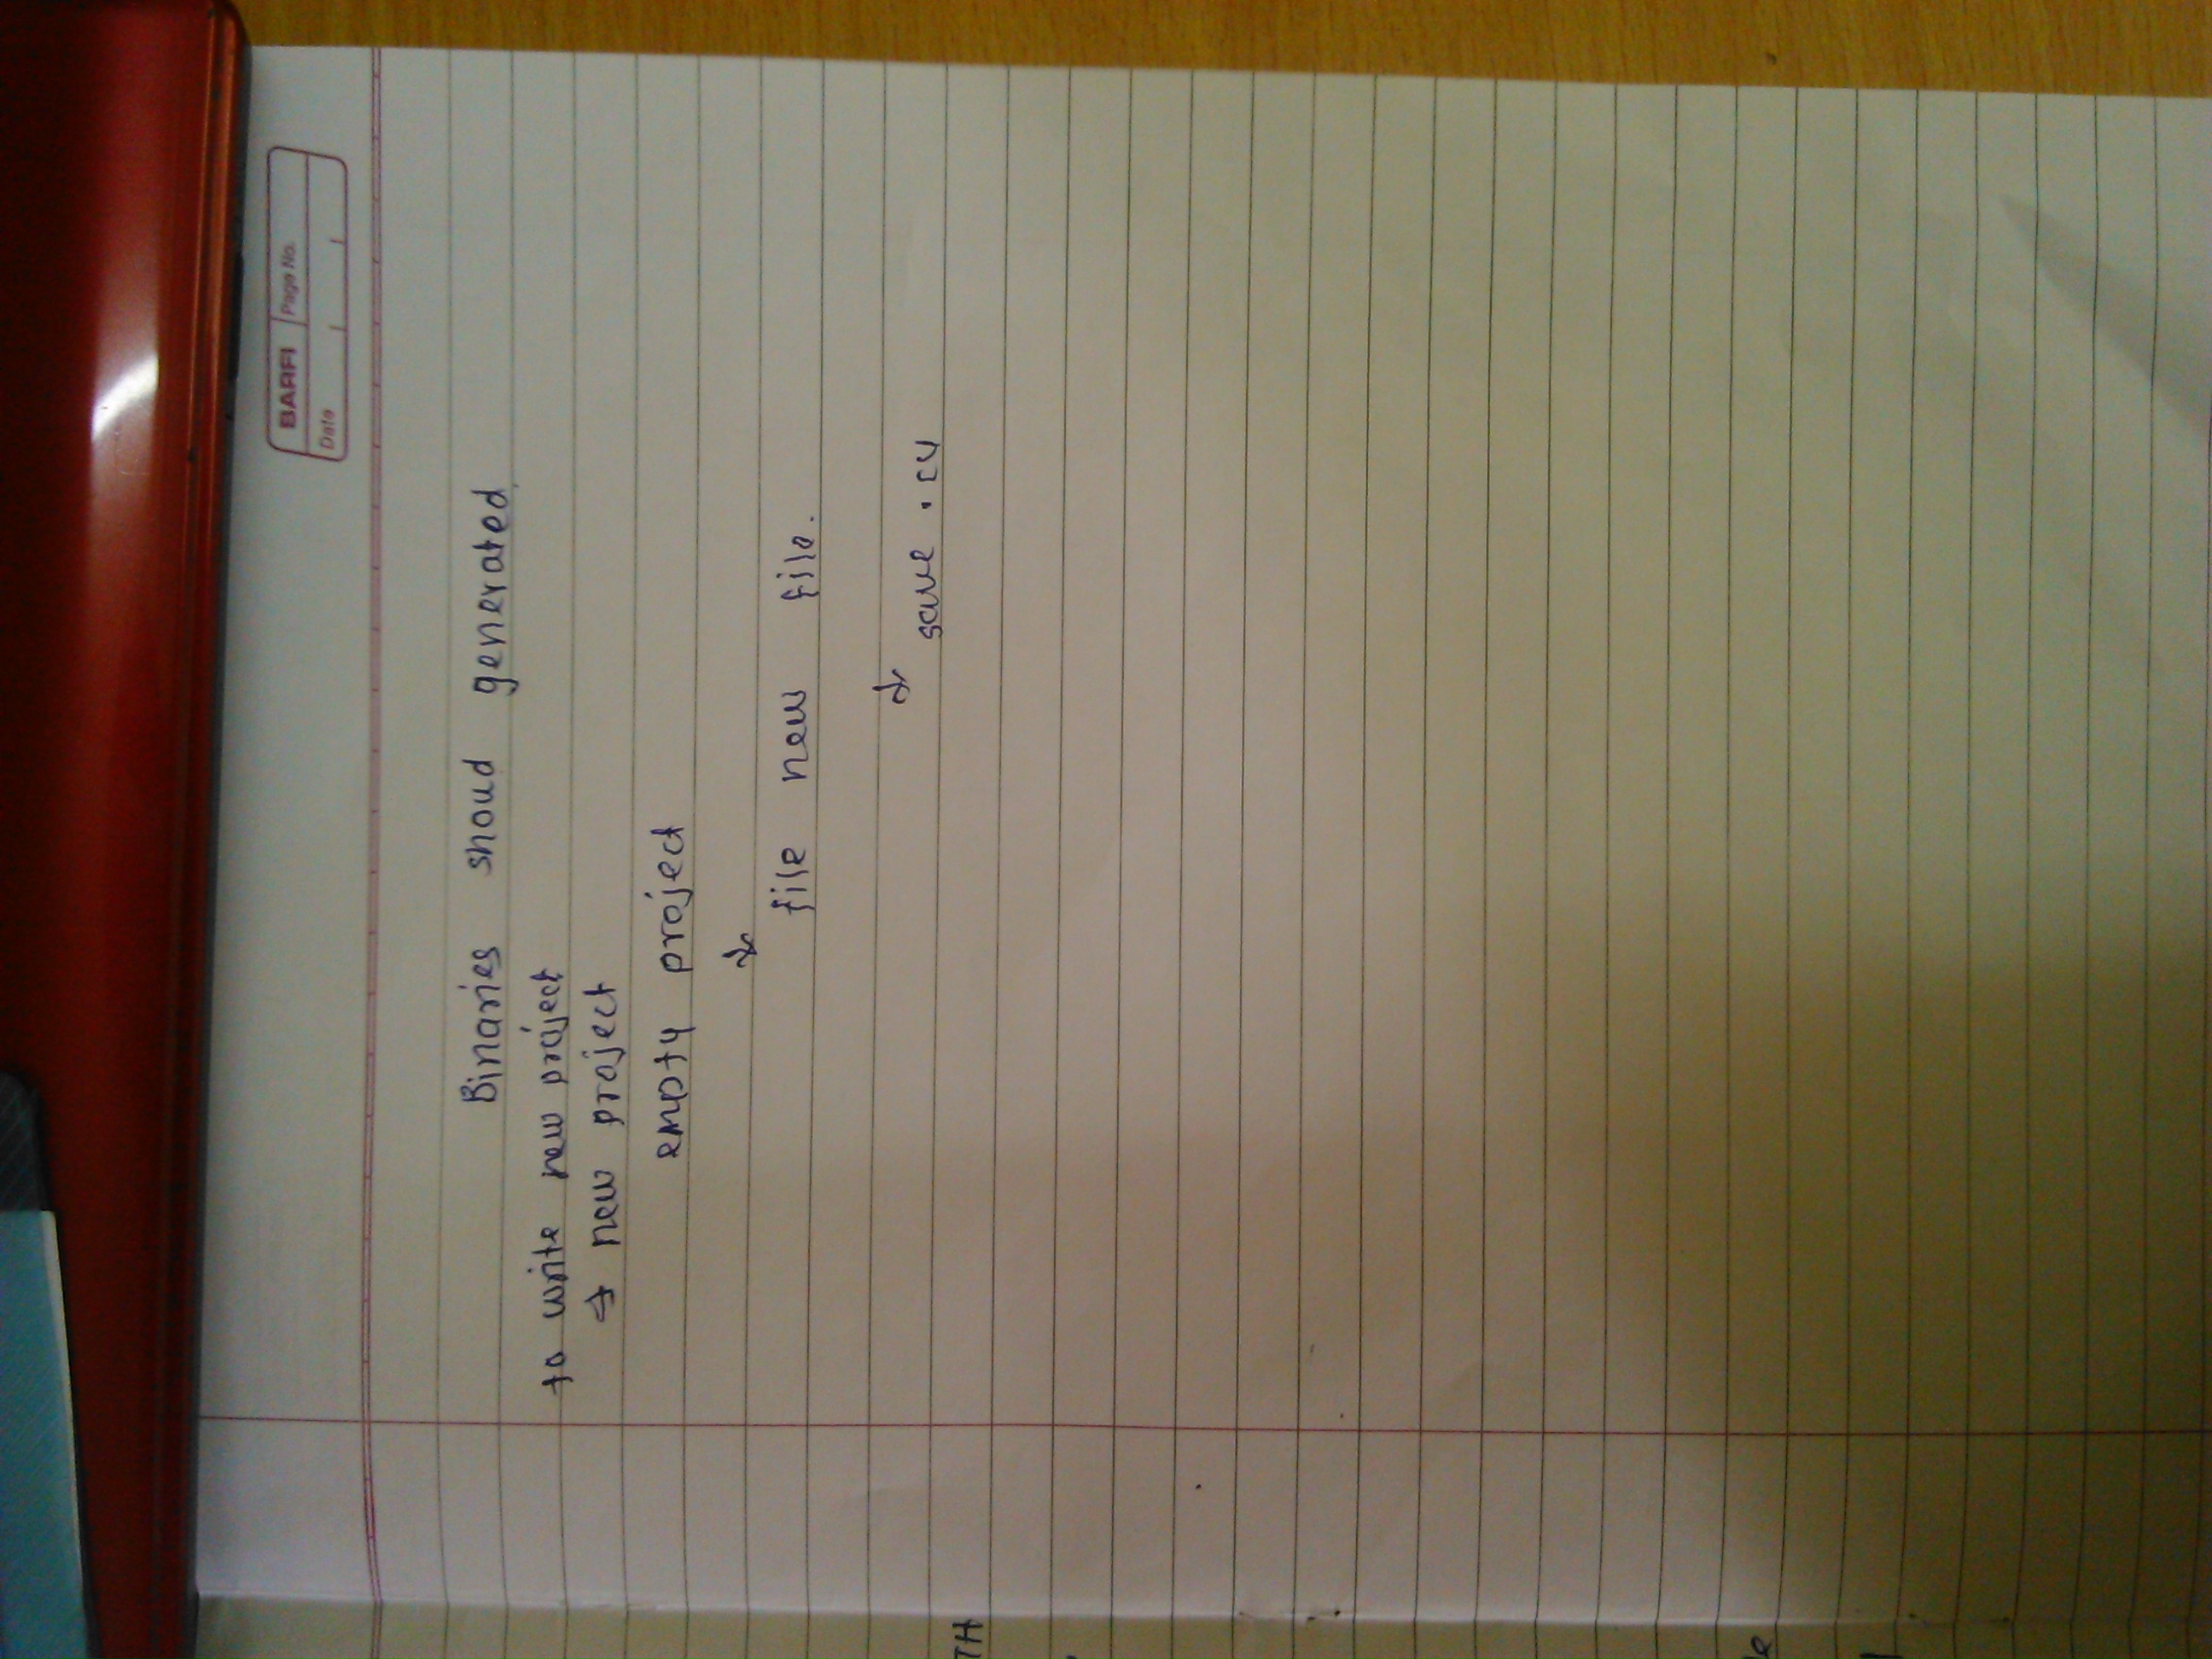 BAFFI Page No.
Date
Binaries shoud generated
to write new project
→ new project
empty project
↓
file new file.
↓
save .cu
TH